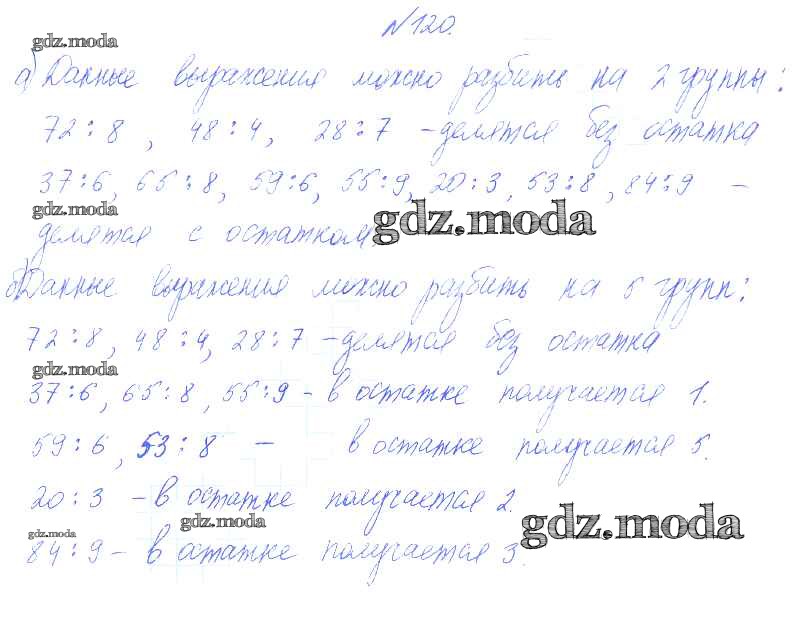 №120.
gdz.moda
а) Данные выражения можно разбить на 2 группы:
72:8, 48:4, 28:7 - делятся без остатка
37:6, 65:8, 59:6, 55:9, 20:3, 53:8, 84:9 -
gdz.moda
gdz.moda
делятся с остатком.
б) Данные выражения можно разбить на 5 групп:
72:8, 48:4, 28:7 - делятся без остатка
gdz.moda
37:6, 65:8, 55:9 - в остатке получается 1.
59:6, 53:8 - в остатке получается 5.
20:3 - в остатке получается 2.
gdz.moda
gdz.moda
gdz.moda
84:9 - в остатке получается 3.